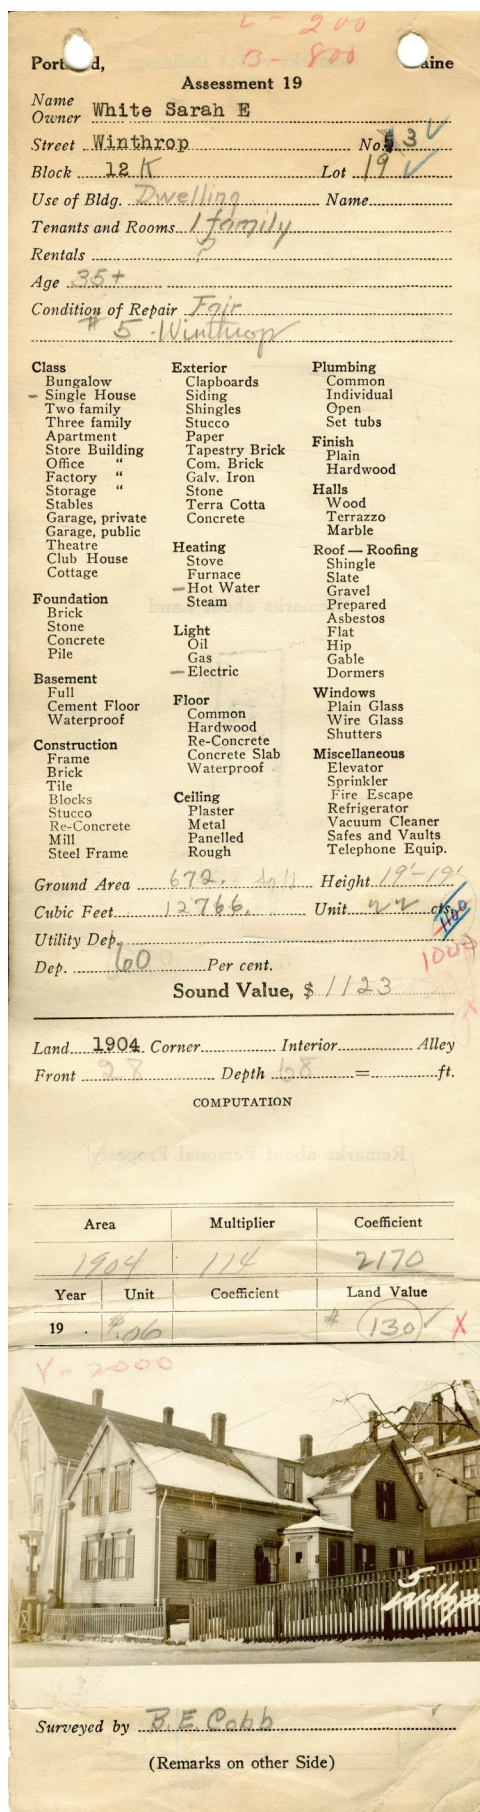 L - 200
B - 800
Portland, Maine
Assessment 19
Name
Owner White Sarah E
Street Winthrop No. 3
Block 12 K Lot 19
Use of Bldg. Dwelling Name
Tenants and Rooms 1 family
Rentals ?
Age 35+
Condition of Repair Fair
# 5 - Winthrop
Class
Bungalow
- Single House
Two family
Three family
Apartment
Store Building
Office "
Factory "
Storage "
Stables
Garage, private
Garage, public
Theatre
Club House
Cottage
Foundation
Brick
Stone
Concrete
Pile
Basement
Full
Cement Floor
Waterproof
Construction
Frame
Brick
Tile
Blocks
Stucco
Re-Concrete
Mill
Steel Frame
Exterior
Clapboards
Siding
Shingles
Stucco
Paper
Tapestry Brick
Com. Brick
Galv. Iron
Stone
Terra Cotta
Concrete
Heating
Stove
Furnace
- Hot Water
Steam
Light
Oil
Gas
- Electric
Floor
Common
Hardwood
Re-Concrete
Concrete Slab
Waterproof
Ceiling
Plaster
Metal
Panelled
Rough
Plumbing
Common
Individual
Open
Set tubs
Finish
Plain
Hardwood
Halls
Wood
Terrazzo
Marble
Roof — Roofing
Shingle
Slate
Gravel
Prepared
Asbestos
Flat
Hip
Gable
Dormers
Windows
Plain Glass
Wire Glass
Shutters
Miscellaneous
Elevator
Sprinkler
Fire Escape
Refrigerator
Vacuum Cleaner
Safes and Vaults
Telephone Equip.
Ground Area 672. Height 19'-19'
Cubic Feet 12766. Unit 22 cts.
1100
Utility Dep.
1000
Dep. 60 Per cent.
Sound Value, $ 1123
Land 1904 Corner Interior Alley
Front 28 Depth 68 = ft.
COMPUTATION
Area Multiplier Coefficient
1904 114 2170
Year Unit Coefficient Land Value
19 . $.06 # 130 X
V - 2000
5
Winthp
Surveyed by B. E. Cobb
(Remarks on other Side)